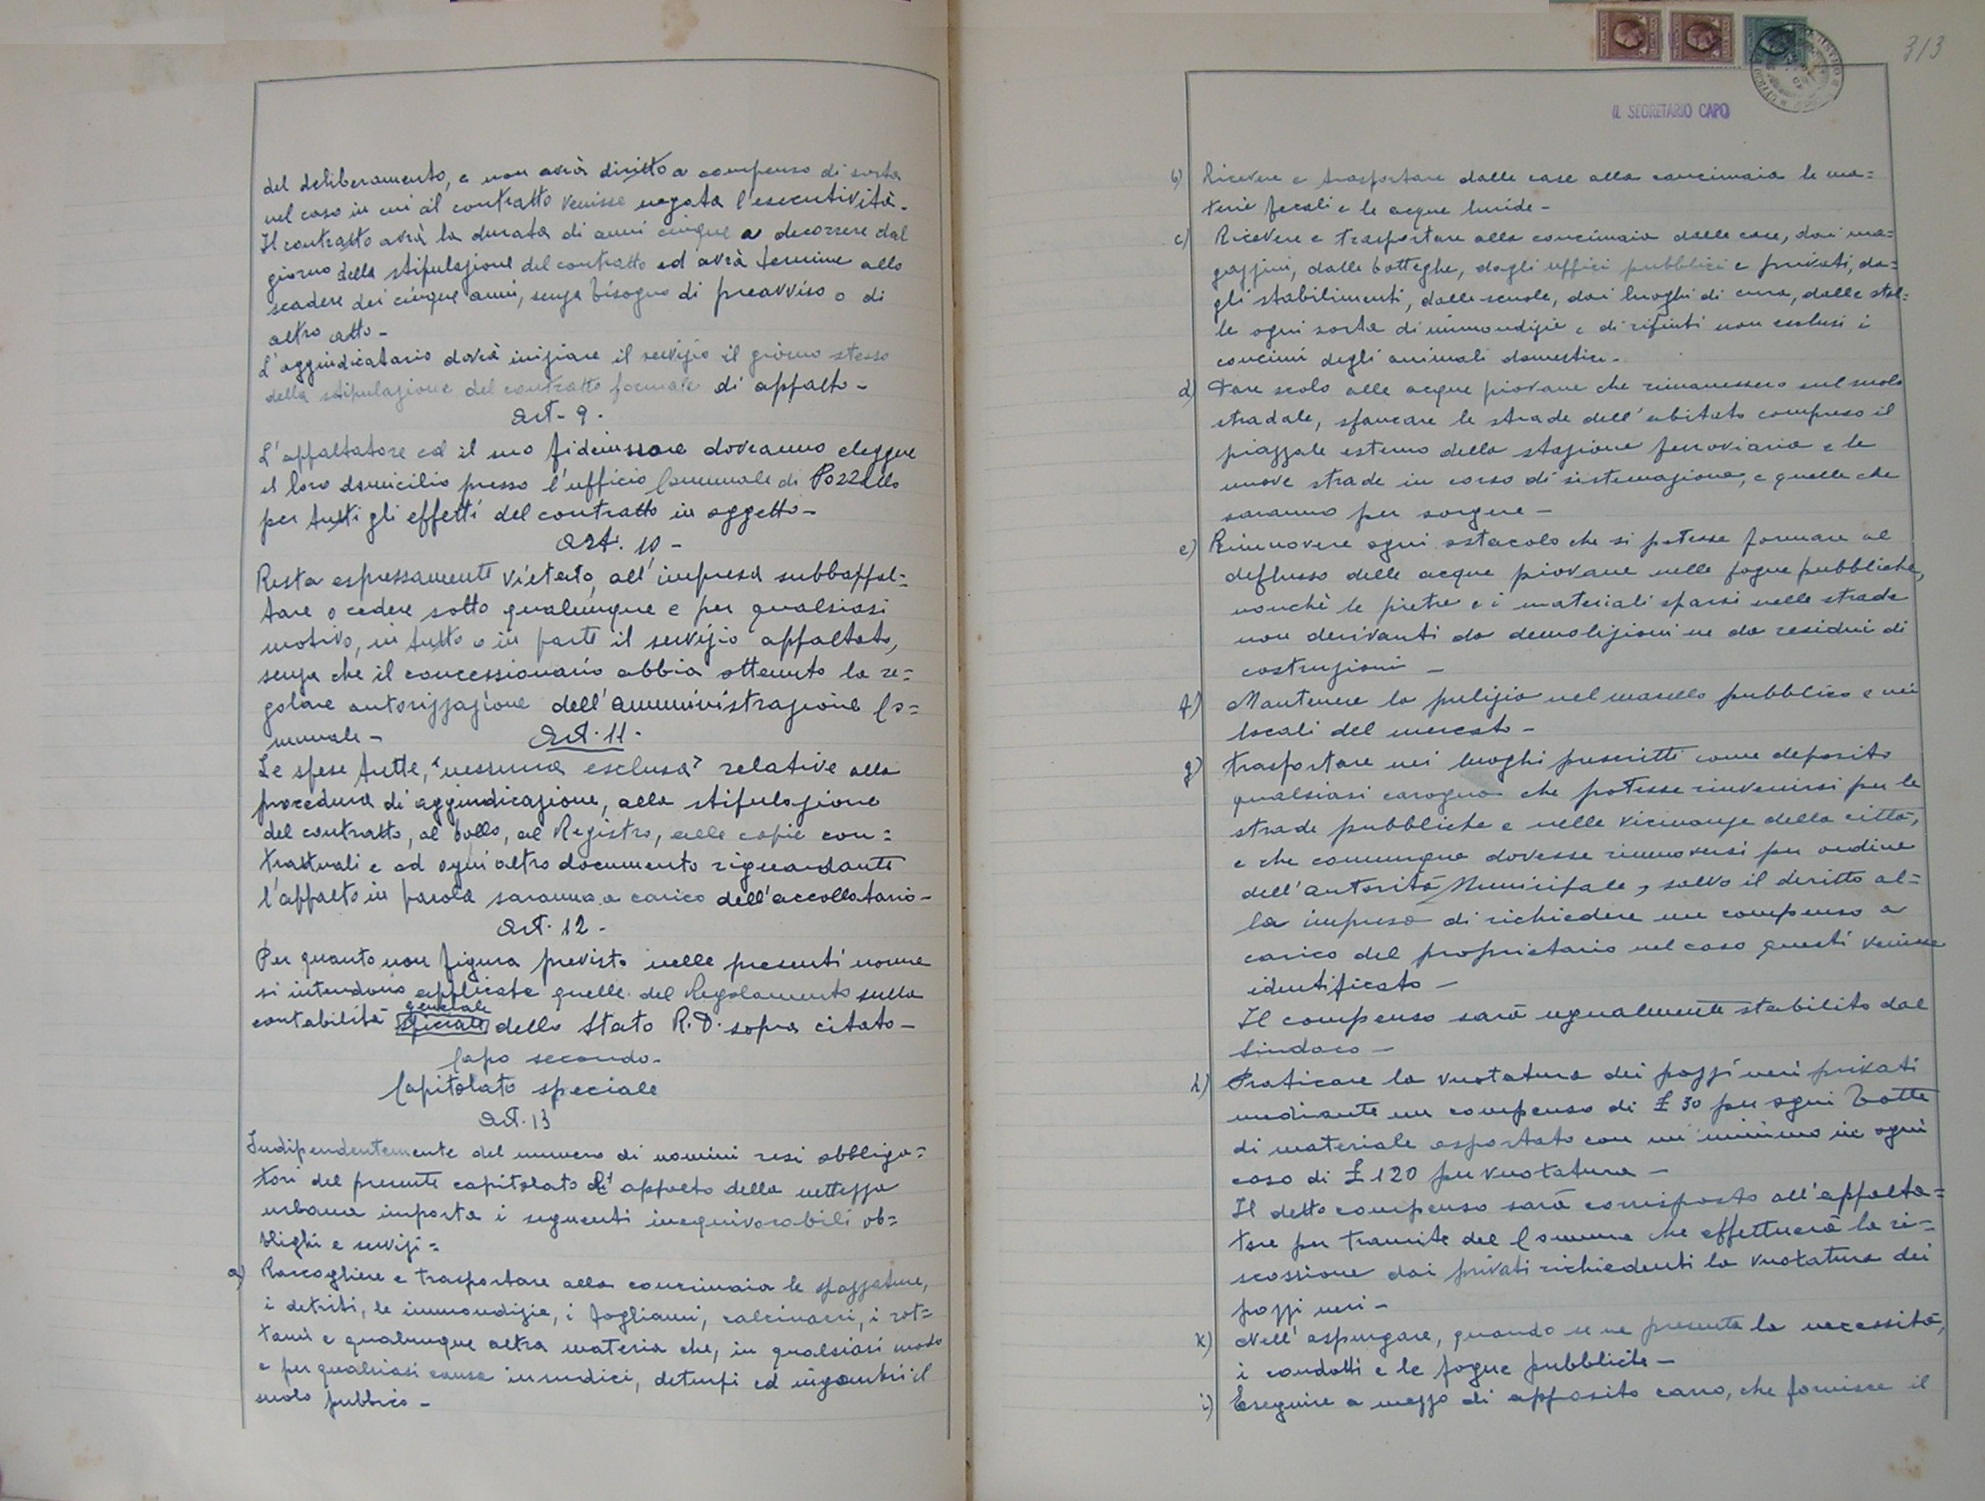 del deliberamento, e non avrà diritto a compenso di sorta
nel caso in cui al contratto venisse negata l'esecutività.
Il contratto avrà la durata di anni cinque a decorrere dal
giorno della stipulazione del contratto ed avrà termine allo
scadere dei cinque anni, senza bisogno di preavviso o di
altro atto-
L'aggiudicatario dovrà iniziare il servizio il giorno stesso
della stipulazione del contratto formale di appalto-
Art- 9.
L'appaltatore ed il suo fideiussore dovranno eleggere
il loro domicilio presso l'ufficio Comunale di Pozzallo
per tutti gli effetti del contratto in oggetto-
Art. 10-
Resta espressamente vietato, all'impresa subbappal=
tare o cedere sotto qualunque e per qualsiasi
motivo, in tutto o in parte il servizio appaltato,
senza che il concessionario abbia ottenuto la re=
golare autorizzazione dell'amministrazione Co=
munale-
Art. 11.
Le spese tutte, "nessuna esclusa" relative alla
procedura di aggiudicazione, alla stipulazione
del contratto, al bollo, al Registro, alle copie con=
trattuali e ad ogni altro documento riguardante
l'appalto in parola saranno a carico dell'accollatario-
Art. 12-
Per quanto non figura previsto nelle presenti norme
si intendono applicate quelle del Regolamento sulla
generale
contabilità speciale dello Stato R.D. sopra citato-
Capo secondo-
Capitolato speciale
Art. 13
Indipendentemente del numero di uomini resi obbliga=
tori del presente capitolato di appalto della nettezza
urbana importa i seguenti inequivocabili ob=
blighi e servizi=
a) Raccogliere e trasportare alla concimaia le spazzature,
i detriti, le immondizie, i fogliami, calcinacci, i rot=
tami e qualunque altra materia che, in qualsiasi modo
e per qualsiasi causa insudici, deturpi ed ingombri il
suolo pubblico-
313
IL SEGRETARIO CAPO
b) Ricevere e trasportare dalle case alla concimaia le ma=
terie fecali e le acque luride-
c) Ricevere e trasportare alla concimaia dalle case, dai ma=
gazzini, dalle botteghe, dagli uffici pubblici e privati, da=
gli stabilimenti, dalle scuole, dai luoghi di cura, dalle stal=
le ogni sorta di immondizie e di rifiuti non esclusi i
concimi degli animali domestici-
d) Dare scolo alle acque piovane che rimanessero sul suolo
stradale, sfancare le strade dell'abitato compreso il
piazzale esterno della stazione ferroviaria e le
nuove strade in corso di sistemazione, e quelle che
saranno per sorgere-
e) Rimuovere ogni ostacolo che si potesse formare al
deflusso delle acque piovane nelle fogne pubbliche,
nonchè le pietre e i materiali sparsi nelle strade
non derivanti da demolizioni ne da residui di
costruzioni-
f) Mantenere la pulizia nel macello pubblico e nei
locali del mercato-
g) trasportare nei luoghi prescritti come deposito
qualsiasi carogna che potesse rinvenirsi per le
strade pubbliche e nelle vicinanze della città,
e che comunque dovesse rimuoversi per ordine
dell'autorità Municipale, salvo il diritto al=
la impresa di richiedere un compenso a
carico del proprietario nel caso questi venisse
identificato-
Il compenso sarà ugualmente stabilito dal
Sindaco-
h) Praticare la vuotatura dei pozzi neri privati
mediante un compenso di £ 30 per ogni botte
di materiale asportato con un minimo in ogni
caso di £ 120 per vuotatura-
Il detto compenso sarà corrisposto all'appalta=
tore per tramite del Comune che effettuerà la ri=
scossione dai privati richiedenti la vuotatura dei
pozzi neri-
k) Nell'espurgare, quando se ne presenta la necessità,
i condotti e le fogne pubbliche-
i) Eseguire a mezzo di apposito carro, che fornisce il